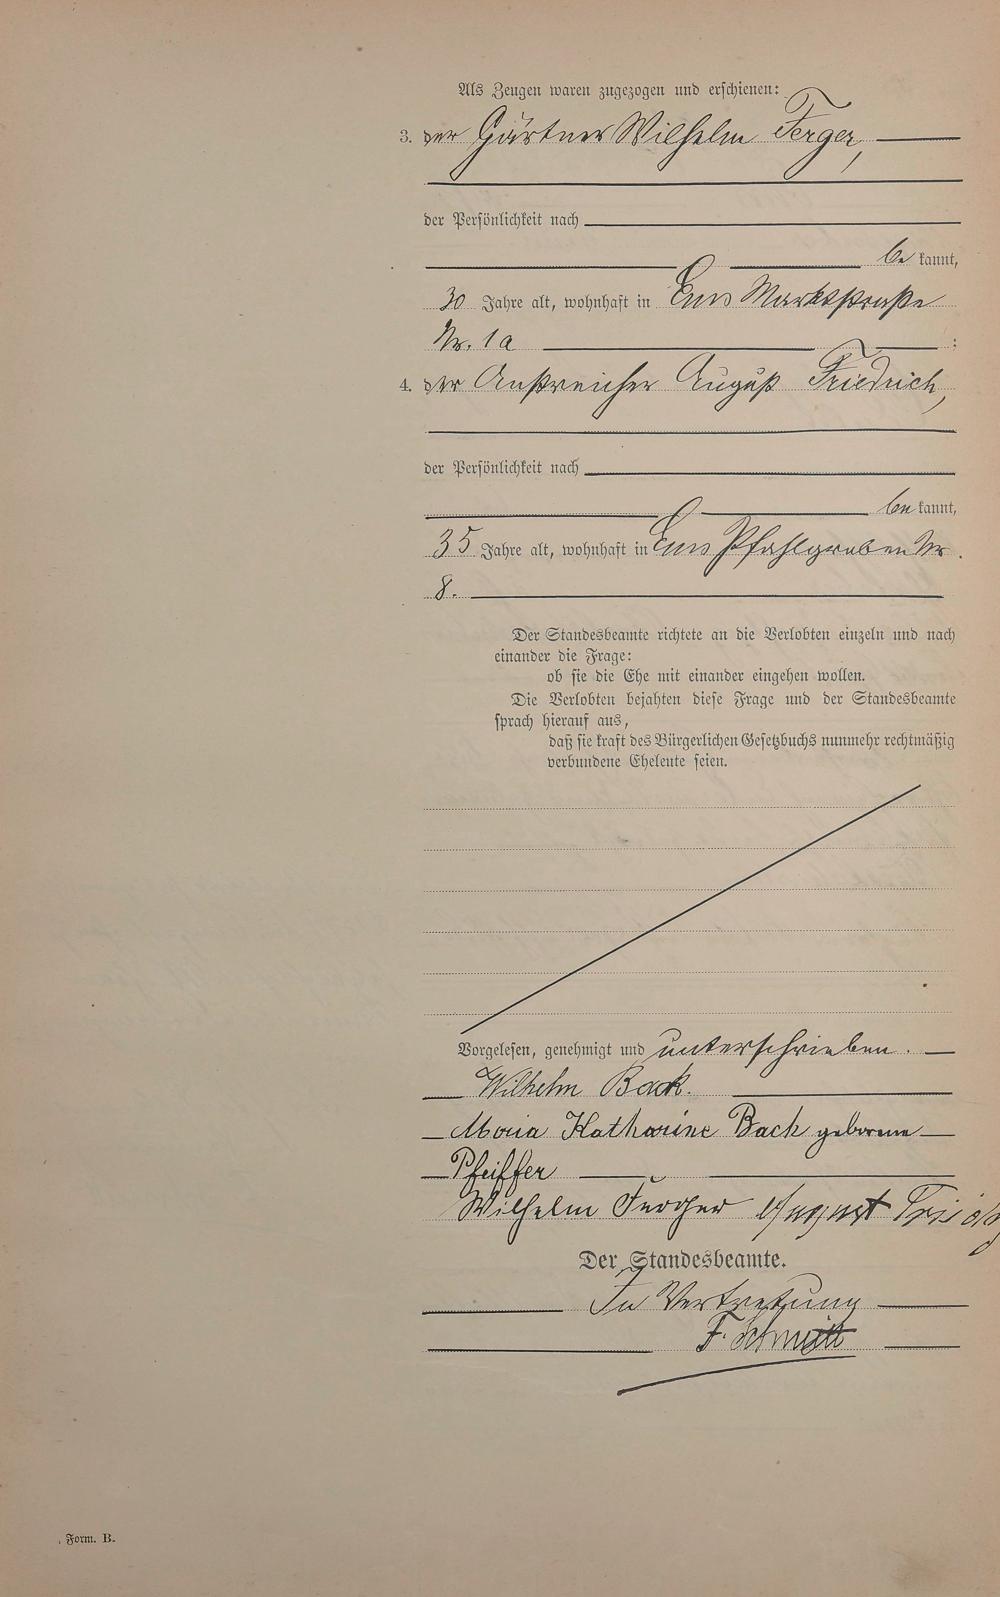 Als Zeugen waren zugezogen und erschienen:
3. der Gärtner Wilhelm Ferger,
der Persönlichkeit nach
be kannt,
30 Jahre alt, wohnhaft in Ems Marktstraße
Nr. 1a ;
4. der Anstreicher August Friedrich,
der Persönlichkeit nach
be kannt,
35 Jahre alt, wohnhaft in Ems Pfahlgraben Nr.
8.
Der Standesbeamte richtete an die Verlobten einzeln und nach
einander die Frage:
ob sie die Ehe mit einander eingehen wollen.
Die Verlobten bejahten diese Frage und der Standesbeamte
sprach hierauf aus,
daß sie kraft des Bürgerlichen Gesetzbuchs nunmehr rechtmäßig
verbundene Eheleute seien.
Vorgelesen, genehmigt und unterschrieben.
Wilhelm Back.
Maria Katharine Bach geborene
Pfeiffer
Wilhelm Ferger August
Der Standesbeamte.
In Vertretung
F. Schmitt
Form. B.